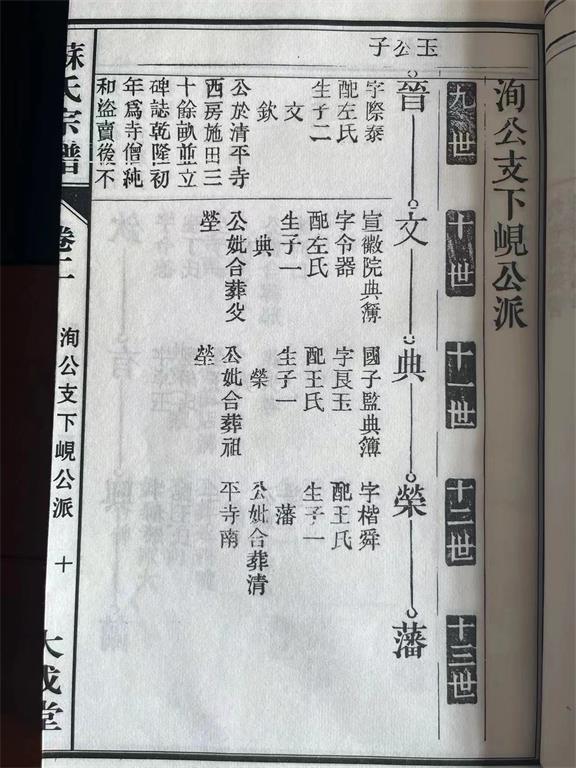 洵公支下峴公派
玉公子
九世
十世
十一世
十二世
十三世
晉
文
典
榮
藩
字際泰
配左氏
生子二
文
欽
公於清平寺
西房施田三
十餘畝並立
碑誌乾隆初
年爲寺僧純
和盜賣後不
宣徽院典簿
字令器
配左氏
生子一
典
公妣合葬父
塋
國子監典簿
字良玉
配王氏
生子一
榮
公妣合葬祖
塋
字楷舜
配王氏
生子一
藩
公妣合葬清
平寺南
蘇氏宗譜
卷二
洵公支下峴公派
十
大成堂